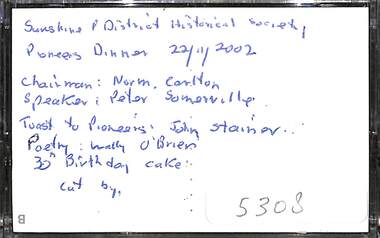 Sunshine & District Historical Society
Pioneers Dinner 22/11/2002
Chairman: Norm. Carlton
Speaker: Peter Somerville.
Toast to Pioneers: John Stainer..
Poetry: Wally O'Brien
30th Birthday cake:
cut by,
5308
B